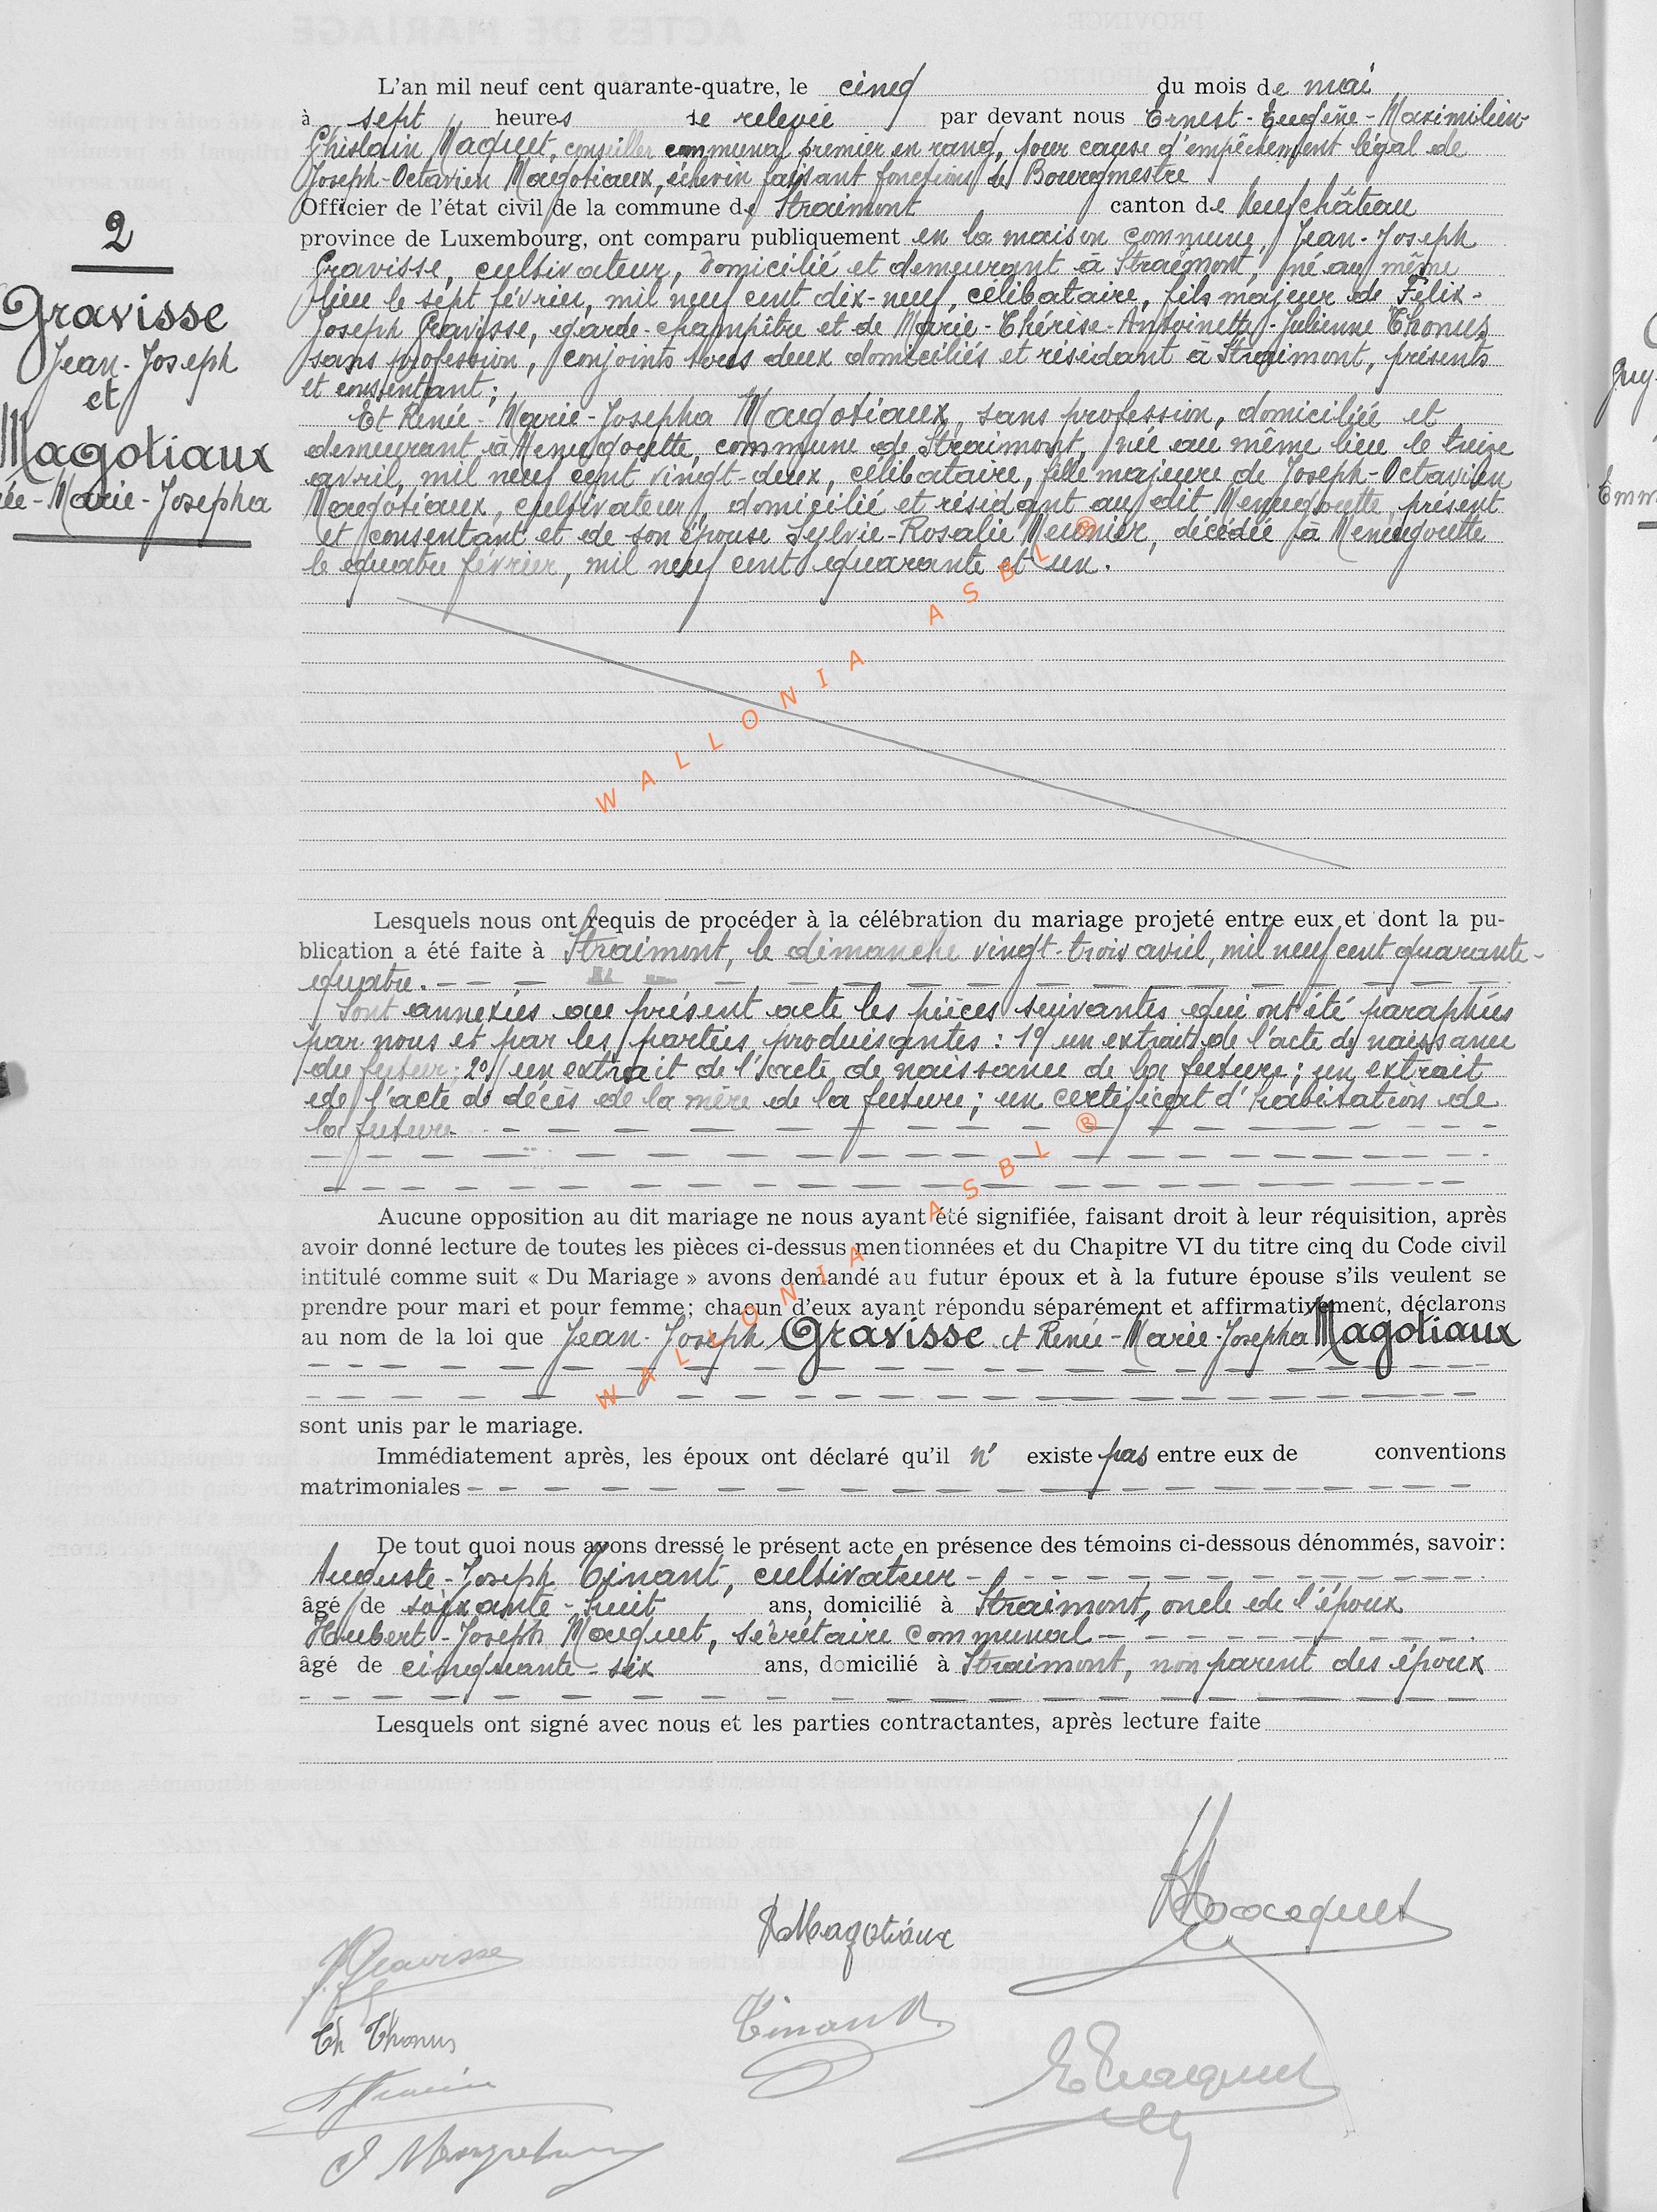 L'an mil neuf cent quarante-quatre, le cinq du mois de mai
à sept heures de relevée par devant nous Ernest-Eugène-Maximilien
Ghislain Maquet, conseiller communal premier en rang, pour cause d'empêchement légal de
Joseph-Octavien Magotiaux, échevin faisant fonctions de Bourgmestre
Officier de l'état civil de la commune de Straimont canton de Neufchâteau
province de Luxembourg, ont comparu publiquement en la maison commune, Jean-Joseph
Gravisse, cultivateur, domicilié et demeurant à Straimont, né au même
lieu le sept février, mil neuf cent dix-neuf, célibataire, fils majeur de Félix-
Joseph Gravisse, garde-champêtre et de Marie-Thérèse-Antoinette-Julienne Thonus,
sans profession, conjoints tous deux domiciliés et résidant à Straimont, présents
et consentant;
Et Renée-Marie-Josepha Magotiaux, sans profession, domiciliée et
demeurant à Menugoutte, commune de Straimont, née au même lieu le treize
avril, mil neuf cent vingt-deux, célibataire, fille majeure de Joseph-Octavien
Magotiaux, cultivateur, domicilié et résidant au dit Menugoutte, présent
et consentant et de son épouse Sylvie-Rosalie Meunier, décédée à Menugoutte
le quatre février, mil neuf cent quarante et un.
2
Gravisse
Jean-Joseph
et
Magotiaux
ée-Marie-Josepha
WALLONIA ASBL ®
Lesquels nous ont requis de procéder à la célébration du mariage projeté entre eux et dont la pu-
blication a été faite à Straimont, le dimanche vingt-trois avril, mil neuf cent quarante-
quatre.
Sont annexées au présent acte les pièces suivantes qui ont été paraphées
par nous et par les parties produisantes : 1º un extrait de l'acte de naissance
du futur ; 2º un extrait de l'acte de naissance de la future ; un extrait
de l'acte de décès de la mère de la future ; un certificat d'habitation de
la future
WALLONIA ASBL ®
Aucune opposition au dit mariage ne nous ayant été signifiée, faisant droit à leur réquisition, après
avoir donné lecture de toutes les pièces ci-dessus mentionnées et du Chapitre VI du titre cinq du Code civil
intitulé comme suit « Du Mariage » avons demandé au futur époux et à la future épouse s'ils veulent se
prendre pour mari et pour femme; chacun d'eux ayant répondu séparément et affirmativement, déclarons
au nom de la loi que Jean-Joseph Gravisse et Renée-Marie-Josepha Magotiaux
sont unis par le mariage.
Immédiatement après, les époux ont déclaré qu'il n' existe pas entre eux de conventions
matrimoniales
De tout quoi nous avons dressé le présent acte en présence des témoins ci-dessous dénommés, savoir:
Auguste-Joseph Tinant, cultivateur
âgé de soixante-huit ans, domicilié à Straimont, oncle de l'époux
Hubert-Joseph Maquet, secrétaire communal
âgé de cinquante-six ans, domicilié à Straimont, non parent des époux
Lesquels ont signé avec nous et les parties contractantes, après lecture faite
R Magotiaux
Gravisse
Th Thonus
Tinant